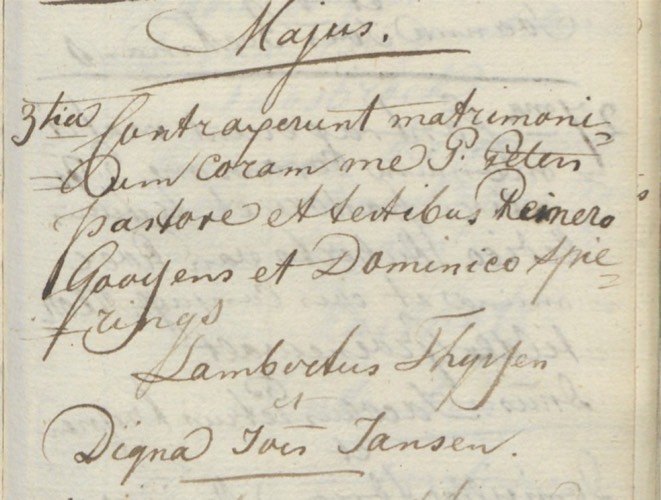 Majus.
3tia Contraxerunt matrimoni=
=um coram me P. Peters
pastore et testibus Reinero
Gooyens et Dominico Spie=
=rings
Lambertus Thyssen
et
Digna Jois Jansen.